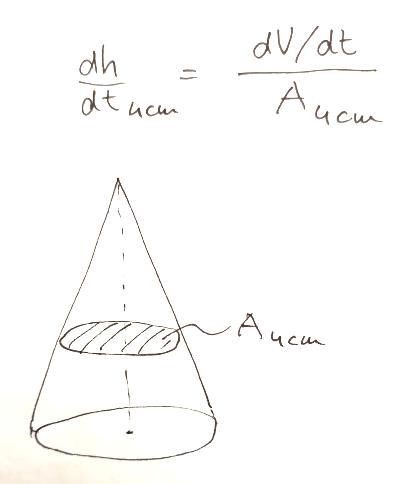 dh/dt 4cm = dV/dt / A 4cm
A 4cm